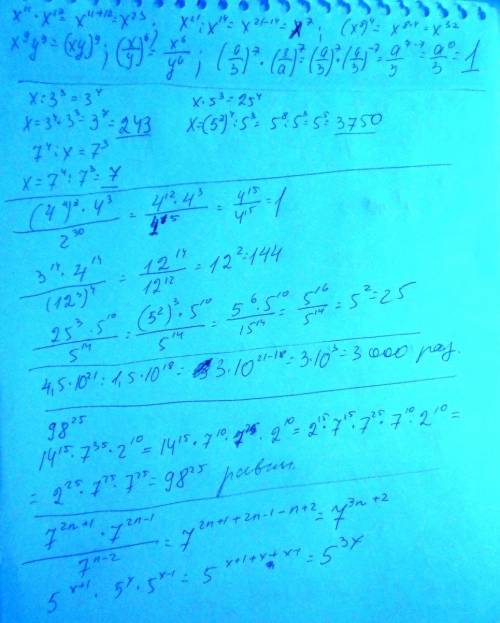 x¹¹ · x¹² = x¹¹⁺¹² = x²³, x²¹ : x¹⁴ = x²¹⁻¹⁴ = x⁷; (x⁸)⁴ = x⁸·⁴ = x³²
x⁹y⁹ = (xy)⁹; (x/y)⁶ = x⁶/y⁶; (a/3)⁷ · (3/a)⁷ = (a/3)⁷ · (a/3)⁻⁷ = a/3⁷⁻⁷ = a/3⁰ = 1
x : 3³ = 3⁴ x · 5³ = 25⁴
7⁴ : x = 7³
x = 7⁴ : 7³ = 7
(4⁴)³ · 4³ / 2³⁰ = 4¹² · 4³ / 4¹⁵ = 4¹⁵/4¹⁵ = 1
25³ · 5¹⁰ / 5¹⁴ = (5²)³ · 5¹⁰ / 5¹⁴ = 5⁶ · 5¹⁰ / 15¹⁴ = 5¹⁶/5¹⁴ = 5² = 25
4,5 · 10²¹ : 1,5 · 10¹⁸ = 3 · 10²¹⁻¹⁸ = 3 · 10³ = 3 000 раз.
98²⁵
14¹⁵ · 7³⁵ · 2¹⁰ = 14¹⁵ · 7¹⁰ · 7²⁵ · 2¹⁰ = 2¹⁵ · 7¹⁵ · 7²⁵ · 7¹⁰ · 2¹⁰ =
= 2²⁵ · 7²⁵ · 7²⁵ = 98²⁵ равны.
7²ⁿ⁺¹ · 7²ⁿ⁻¹ / 7ⁿ⁻² = 7²ⁿ⁺¹⁺²ⁿ⁻¹⁻ⁿ⁺² = 7³ⁿ⁺²
5ˣ⁺¹ · 5ˣ · 5ˣ⁻¹ = 5ˣ⁺¹⁺ˣ⁺ˣ⁻¹ = 5³ˣ